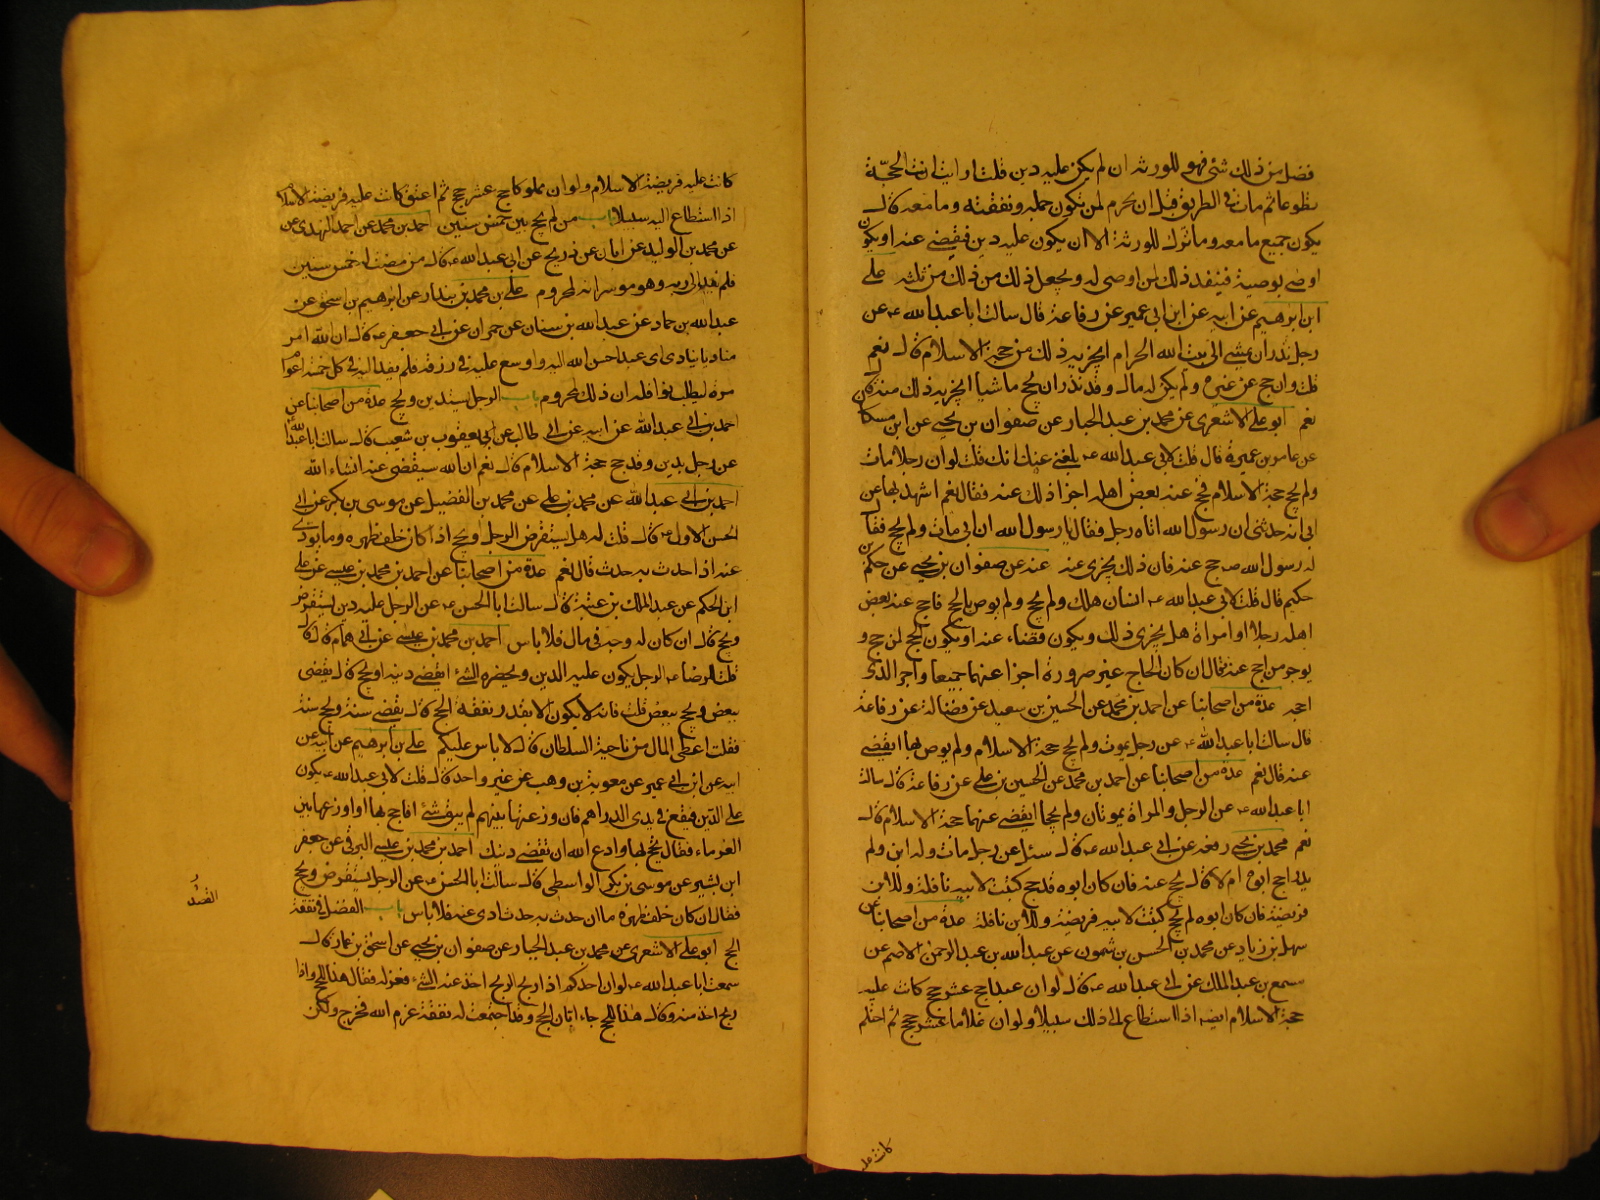 فضل من ذلك شئ فهو للورثة ان لم يكن عليه دين قلت ارايت ان كانت الحجة
تطوعا ثم مات في الطريق قبل ان يحرم لمن تكون حمله ونفقته وما معه قال
يكون جميع ما معه وما ترك للورثة الا ان يكون عليه دين فيقضى عنه او يكون
اوصى بوصية فينفذ ذلك لمن اوصى له ويجعل ذلك من ذلك من ثلثه على
ابن ابرهيم عن ابيه عن ابن ابي عمير عن رفاعة قال سالت ابا عبد الله ع عن
رجل نذر ان يمشى الى بيت الله الحرام ايجزيه ذلك من حجة الاسلام قال نعم
قلت وان حج عن غيره ولم يكن له مال وقد نذر ان يحج ماشيا ايجزيه ذلك منه قال
نعم ابو على الاشعرى عن محمد بن عبد الجبار عن صفوان بن يحيى عن ابن مسكان
عن عامر بن عميرة قال قلت لابي عبد الله ع بلغنى عنك انك قلت لو ان رجلا مات
ولم يحج حجة الاسلام فحج عنه بعض اهله اجزا ذلك عنه فقال نعم اشهد بها عن
ابى انه حدثنى ان رسول الله اتاه رجل فقال يا رسول الله ان ابى مات ولم يحج فقال
له رسول الله ص حج عنه فان ذلك يجزى عنه عنه عن صفوان بن يحيى عن حكم بن
حكيم قال قلت لابي عبد الله ع انسان هلك ولم يحج ولم يوص بالحج فاحج عنه بعض
اهله رجلا او امراة هل يجزى ذلك ويكون قضاء عنه او يكون الحج لمن حج و
يوجر من احج عنه فقال ان كان الحاج غير صرورة اجزا عنهما جميعا واجر الذى
احجه عدة من اصحابنا عن احمد بن محمد عن الحسين بن سعيد عن فضالة عن رفاعة
قال سالت ابا عبد الله ع عن رجل يموت ولم يحج حجة الاسلام ولم يوص بها ايقضى
عنه قال نعم عدة من اصحابنا عن احمد بن محمد عن الحسين بن على عن رفاعة قال سالت
ابا عبد الله ع عن الرجل والمراة يموتان ولم يحجا ايقضى عنهما حجة الاسلام قال
نعم محمد بن يحيى رفعه عن ابى عبد الله ع قال سئل عن رجل مات وله ابن ولم
يدر احج ابوه ام لا قال يحج عنه فان كان ابوه قد حج كتبت لابيه نافلة وللابن
فريضة فان كان ابوه لم يحج كتبت لابيه فريضة وللابن نافلة عدة من اصحابنا عن
سهل بن زياد عن محمد بن الحسن بن شمون عن عبد الله بن عبد الرحمن الاصم عن
مسمع بن عبد الملك عن ابى عبد الله ع قال لو ان عبدا حج عشر حجج كانت عليه
حجة الاسلام ايضا اذا استطاع الى ذلك سبيلا ولو ان غلاما عشر حجج ثم احتلم
كانت عليه
كانت عليه فريضة الاسلام ولو ان مملوكا حج عشر حجج ثم اعتق كانت عليه فريضة الاسلام
اذا استطاع اليه سبيلا باب من لم يحج بين خمس سنين احمد بن محمد عن احمد النهدى عن
عن محمد بن الوليد عن ابان عن ذريح عن ابى عبد الله ع قال من مضت له خمس سنين
فلم يفد الى ربه وهو موسر انه لمحروم على بن محمد بن بندار عن ابرهيم بن اسحق عن
عبد الله بن حماد عن عبد الله بن سنان عن حمران عن ابى جعفر ع قال ان لله امر
مناديا ينادى اى عبد احسن الله اليه واوسع عليه في رزقه فلم يفد اليه في كل خمسة اعوام
مرة ليطلب نوافله ان ذلك لمحروم باب الرجل يستدين ويحج عدة من اصحابنا عن
احمد بن ابى عبد الله عن ابيه عن ابى طالب عن يعقوب بن شعيب قال سالت ابا عبد الله
عن رجل يدين وقد حج حجة الاسلام قال نعم ان الله سيقضى عنه انشاء الله
احمد بن ابى عبد الله عن محمد بن على عن محمد بن الفضيل عن موسى بن بكر عن ابى
الحسن الاول ع قال قلت له هل يستقرض الرجل ويحج اذا كان خلف ظهره وما يودى
عنه اذا حدث به حدث قال نعم عدة من اصحابنا عن احمد بن محمد بن عيسى عن على
ابن الحكم عن عبد الملك بن عتبة قال سالت ابا الحسن ع عن الرجل عليه دين يستقرض
ويحج قال ان كان له وجه فى مال فلا باس احمد بن محمد بن عيسى عن ابى همام قال قال
قلت للرضا ع الرجل يكون عليه الدين ويحضره الشئ ايقضى دينه او يحج قال يقضى
ببعض ويحج ببعض قلت فانه لا يكون الا بقدر نفقة الحج قال يقضى سنة ويحج سنة
فقلت اعطى المال من ناحية السلطان قال لا باس عليكم على بن ابرهيم عن ابيه عن
ابيه عن ابن ابى عمير عن معوية بن وهب عن غير واحد قال قلت لابى عبد الله ع يكون
على الدين فيقع فى يدى الدراهم فان وزعتها بينهم لم يبق شئ افاحج بها او اوزعها بين
الغرماء فقال حج بها وادع الله ان يقضى دينك احمد بن محمد بن عيسى البرقى عن جعفر
ابن بشير عن موسى بن بكر الواسطى قال سالت ابا الحسن ع عن الرجل يستقرض ويحج
فقال ان كان خلف ظهره ما ان حدث به حدث ادى عنه فلا باس باب الفضل فى نفقة
الحج ابو على الاشعرى عن محمد بن عبد الجبار عن صفوان بن يحيى عن اسحق بن عمار قال
سمعت ابا عبد الله ع لو ان احدكم اذا ربح الربح اخذ عنه الشئ فعزله فقال هذا للحج واذا
ربح اخذ منه وقال هذا للحج جاء ابان الحج وقد اجتمعت له نفقة عزم الله فخرج ولكن
القصد